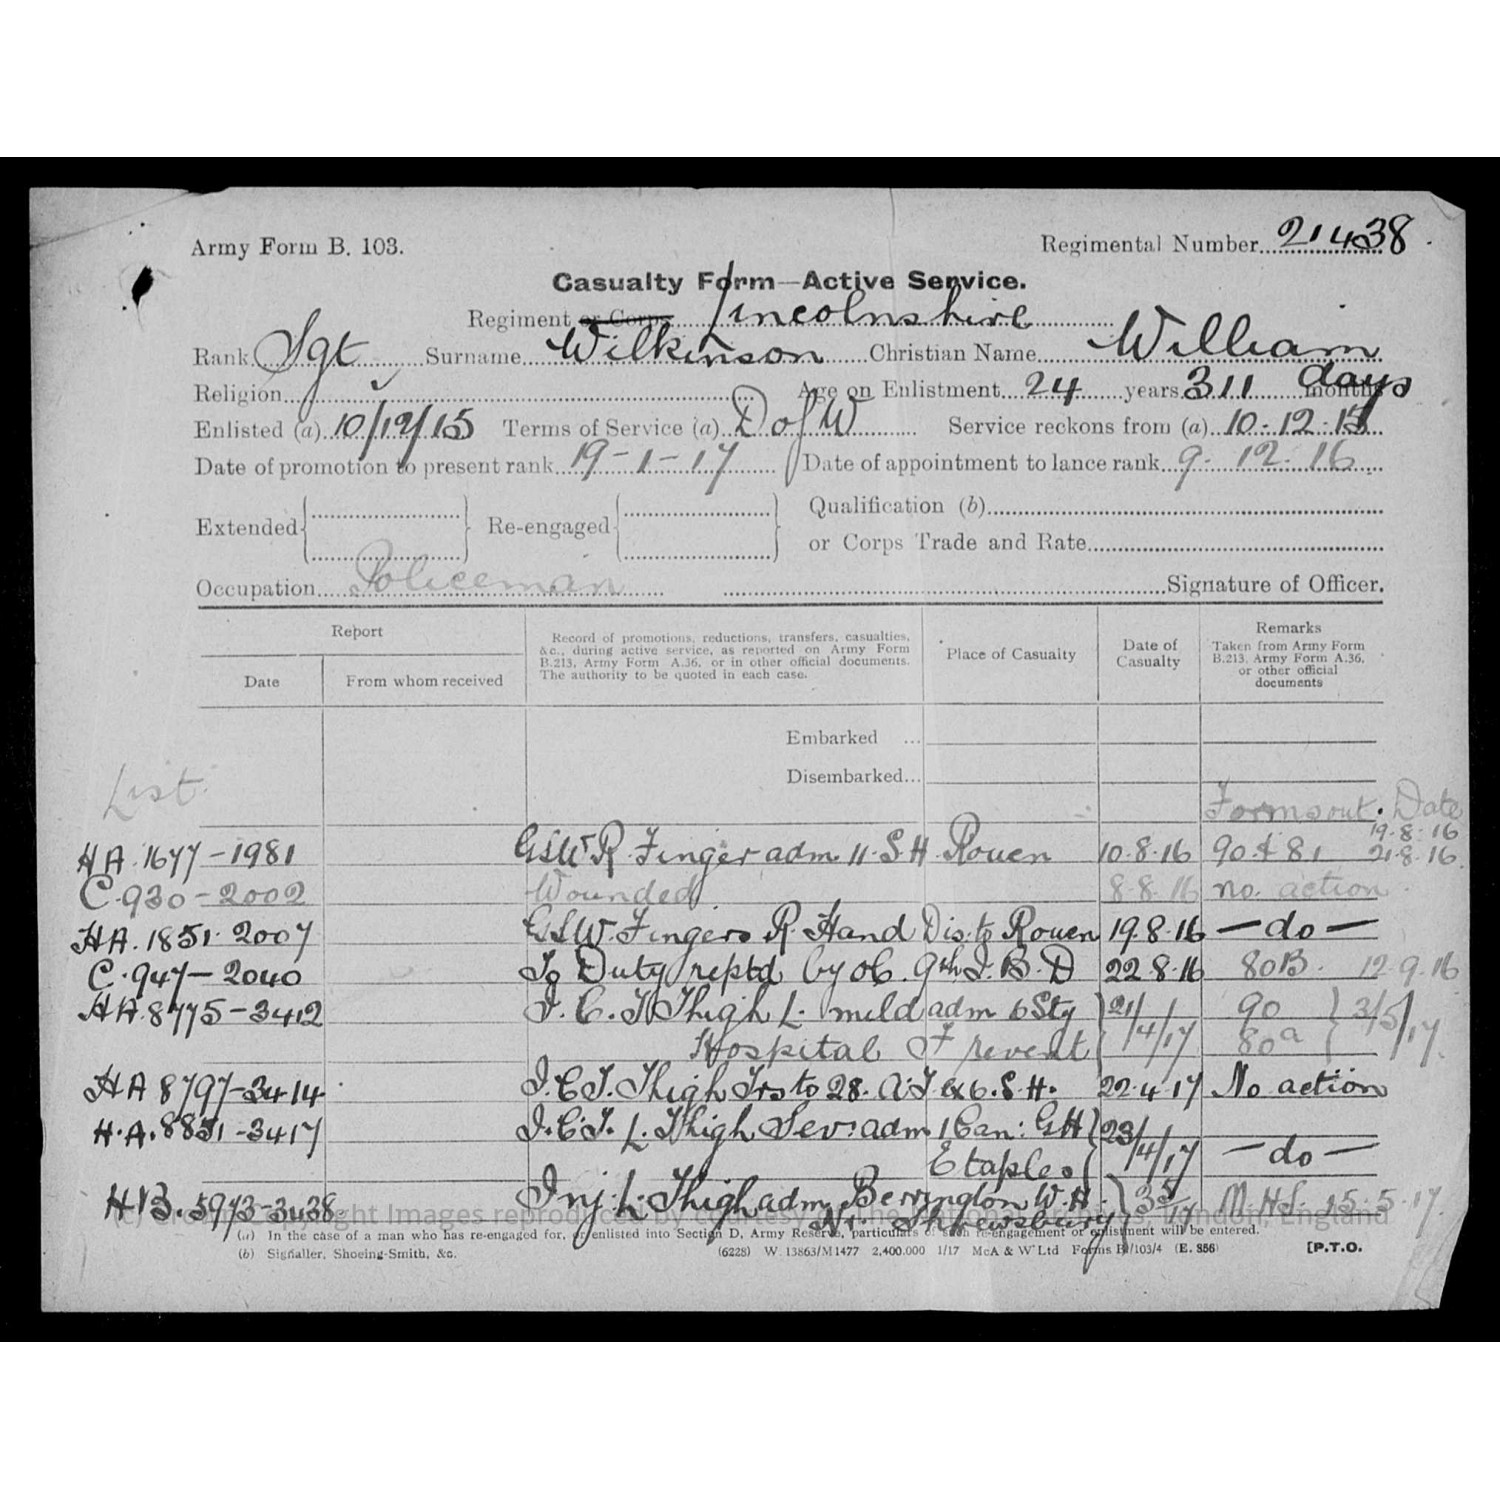 Army Form B. 103.
Regimental Number 21438
Casualty Form—Active Service.
Regiment or Corps Lincolnshire
Rank Sgt Surname Wilkinson Christian Name William
Religion Age on Enlistment 24 years 311 months days
Enlisted (a) 10/12/15 Terms of Service (a) D of W Service reckons from (a) 10-12-15
Date of promotion to present rank 19-1-17 Date of appointment to lance rank 9. 12. 16
Extended Re-engaged Qualification (b)
or Corps Trade and Rate
Occupation Policeman Signature of Officer.
Report
Date From whom received
Record of promotions, reductions, transfers, casualties,
&c., during active service, as reported on Army Form
B.213, Army Form A.36, or in other official documents.
The authority to be quoted in each case.
Place of Casualty
Date of
Casualty
Remarks
Taken from Army Form
B.213, Army Form A.36,
or other official
documents
Embarked ...
Disembarked...
List Forms out. Date
19.8.16
HA.1677-1981 GSW R. Finger adm. 11. S.H. Rouen 10.8.16 90 & 81 21.8.16
C.930-2002 Wounded 8-8.16 no. action
HA.1851.2007 GSW. Fingers R. Hand Dis. to Rouen 19.8.16 —do—
C.947-2040 To Duty reptd by OC. 9th I.B.D 22.8.16 80B. 12.9.16
HA.8775-3412 I.C.T Thigh L. mild adm 6 Sty 21/4/17 90 3/5/17
Hospital Frevent 80a
HA 8797-3414 I.C.T. Thigh Trs to 28. A.T. ex 6.S.H. 22.4.17 No action
H.A.8831-3417 I.C.T. L. Thigh Sev: adm 1 Can: GH 23/4/17
Etaples —do—
HB.5973-3438 Inj. L. Thigh adm Berrington W.H. 3/5/17 M.H.S. 15.5.17.
Nr. Shrewsbury
(c) Crown Copyright Images reproduced by courtesy of The National Archives, London, England
(a) In the case of a man who has re-engaged for, or enlisted into Section D, Army Reserve, particulars of such re-engagement or enlistment will be entered.
(b) Signaller, Shoeing-Smith, &c.
(6228) W. 13863/M1477 2,400,000 1/17 McA & W Ltd Forms B/103/4 (E. 856) [P.T.O.